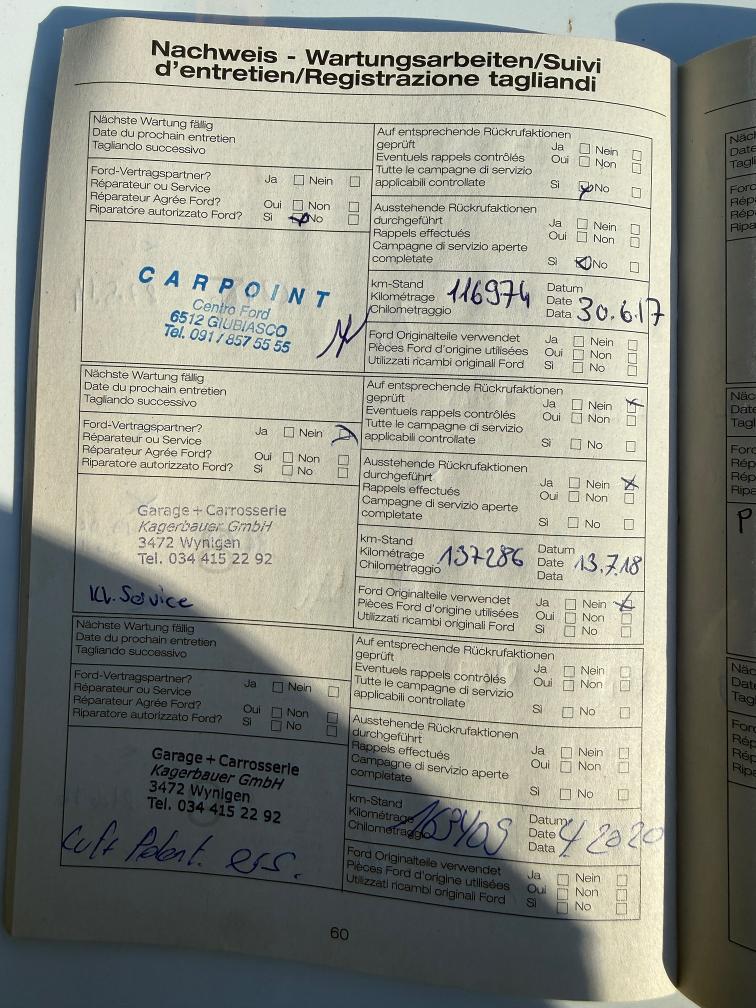 Nachweis - Wartungsarbeiten/Suivi
d'entretien/Registrazione tagliandi
Nächste Wartung fällig
Date du prochain entretien
Tagliando successivo
Ford-Vertragspartner?
Ja Nein
Réparateur ou Service
Réparateur Agrée Ford?
Oui Non
Riparatore autorizzato Ford?
Sì No
CARPOINT
Centro Ford
6512 GIUBIASCO
Tel. 091/857 55 55
Auf entsprechende Rückrufaktionen
geprüft
Ja Nein
Eventuels rappels contrôlés
Oui Non
Tutte le campagne di servizio
applicabili controllate
Sì No
Ausstehende Rückrufaktionen
durchgeführt
Ja Nein
Rappels effectués
Oui Non
Campagne di servizio aperte
completate
Sì No
km-Stand
Kilométrage
Chilometraggio
116974
Datum
Date
Data
30.6.17
Ford Originalteile verwendet
Ja Nein
Pièces Ford d'origine utilisées
Oui Non
Utilizzati ricambi originali Ford
Sì No
Nächste Wartung fällig
Date du prochain entretien
Tagliando successivo
Ford-Vertragspartner?
Ja Nein
Réparateur ou Service
Réparateur Agrée Ford?
Oui Non
Riparatore autorizzato Ford?
Sì No
Garage + Carrosserie
Kagerbauer GmbH
3472 Wynigen
Tel. 034 415 22 92
Kl. Service
Auf entsprechende Rückrufaktionen
geprüft
Ja Nein
Eventuels rappels contrôlés
Oui Non
Tutte le campagne di servizio
applicabili controllate
Sì No
Ausstehende Rückrufaktionen
durchgeführt
Ja Nein
Rappels effectués
Oui Non
Campagne di servizio aperte
completate
Sì No
km-Stand
Kilométrage
Chilometraggio
137286
Datum
Date
Data
13.7.18
Ford Originalteile verwendet
Ja Nein
Pièces Ford d'origine utilisées
Oui Non
Utilizzati ricambi originali Ford
Sì No
Nächste Wartung fällig
Date du prochain entretien
Tagliando successivo
Ford-Vertragspartner?
Ja Nein
Réparateur ou Service
Réparateur Agrée Ford?
Oui Non
Riparatore autorizzato Ford?
Sì No
Garage + Carrosserie
Kagerbauer GmbH
3472 Wynigen
Tel. 034 415 22 92
Luft
Auf entsprechende Rückrufaktionen
geprüft
Ja Nein
Eventuels rappels contrôlés
Oui Non
Tutte le campagne di servizio
applicabili controllate
Sì No
Ausstehende Rückrufaktionen
durchgeführt
Ja Nein
Rappels effectués
Oui Non
Campagne di servizio aperte
completate
Sì No
km-Stand
Kilométrage
Chilometraggio
169409
Datum
Date
Data
4 2020
Ford Originalteile verwendet
Ja Nein
Pièces Ford d'origine utilisées
Oui Non
Utilizzati ricambi originali Ford
Sì No
60